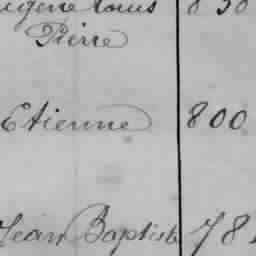 Eugène Louis 830
Pierre
Etienne 800
Jean Baptiste 78